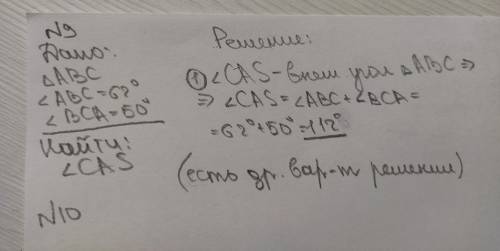 N9
Дано:
△ABC
∠ABC=62°
∠BCA=50°
Найти:
∠CAS
N10
Решение:
① ∠CAS-внеш угол △ABC ⇒
⇒ ∠CAS=∠ABC+∠BCA=
=62°+50°=112°
(есть др. вар-т решении)